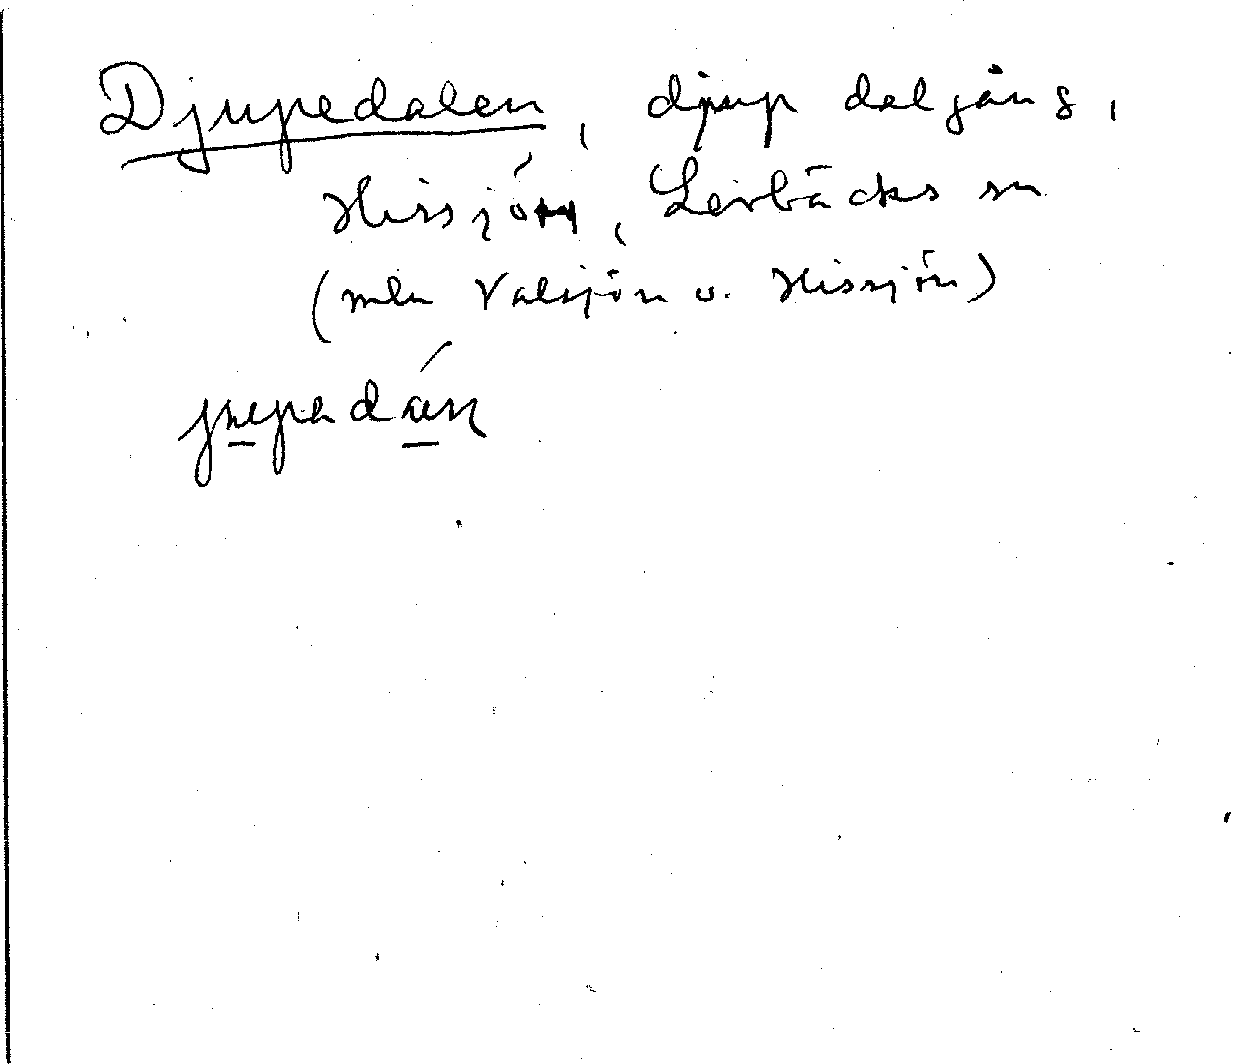 Djupedalen, djup dalgång,
Hissjön, Lerbäcks sn
(mln Valsjön o. Hissjön)
jupadán